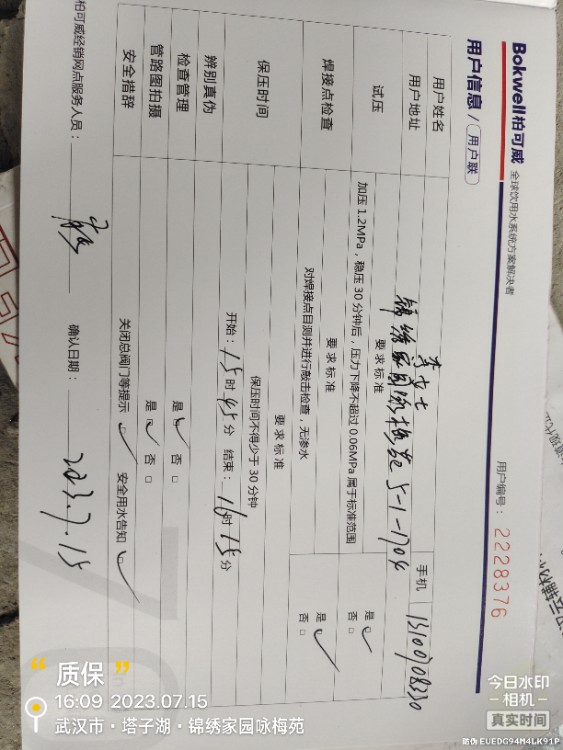 Bokwell柏可威 全球饮用水系统方案解决者
用户信息 / 用户联
用户编号：2228376
用户姓名 李女士 手机
用户地址 锦绣家园咏梅苑 5-1-1704
试压 要求标准
加压 1.2MPa，稳压 30 分钟后，压力下降不超过 0.06MPa 属于标准范围
是 否
焊接点检查 要求标准
对焊接点目测并进行敲击检查，无渗水
是 否
保压时间 要求标准
保压时间不得少于 30 分钟
开始：15 时 45 分 结束：16 时 15 分
辨别真伪 是 否
检查管理
管路图拍摄 是 否
安全措辞 关闭总阀门等提示 安全用水告知
柏可威经销网点服务人员：
确认日期：2023.7.15
“质保”
16:09 2023.07.15
武汉市·塔子湖·锦绣家园咏梅苑
今日水印
-相机-
真实时间
防伪 EUEDG94M4LK91P